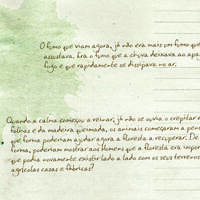 O fumo que viam agora, já não era mais um fumo que
assustava. Era o fumo que a chuva deixava ao apa
fogo e que rapidamente se dissipava no ar.
Quando a calma começou a reinar, já não se ouvia o crepitar
folhas e da madeira queimada, os animais começaram a pens
que forma poderiam ajudar agora a floresta a recuperar. De
forma, poderiam mostrar aos Homens que a floresta era impor
que podia novamente existir lado a lado com os seus terrenos
agrícolas casas e fábricas?